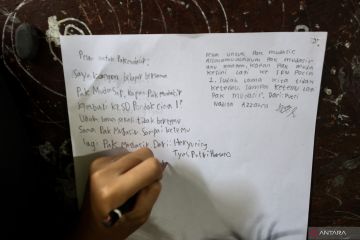 Pesan untuk Pak mudasir
Saya kangen belajar bersama
Pak Mudarsip, kapan Pak Mudasir
kembali ke SD Pondok Cina 1?
Udah lama sekali tidak bertemu
Sama Pak Mudasir Sampai ketemu
lagi Pak Mudasir Dari:
Tyas Putri
Pesan untuk Pak mudasir
Assalamualaikum Pak mudasir
aku kangen, kapan Pak muda
kesini lagi ke SDN Pocin
1. Sudah lama kita tidak
ketemu. Sampai ketemu lagi
Pak mudasir Dari:
Nabila Azzahra
ANTARA